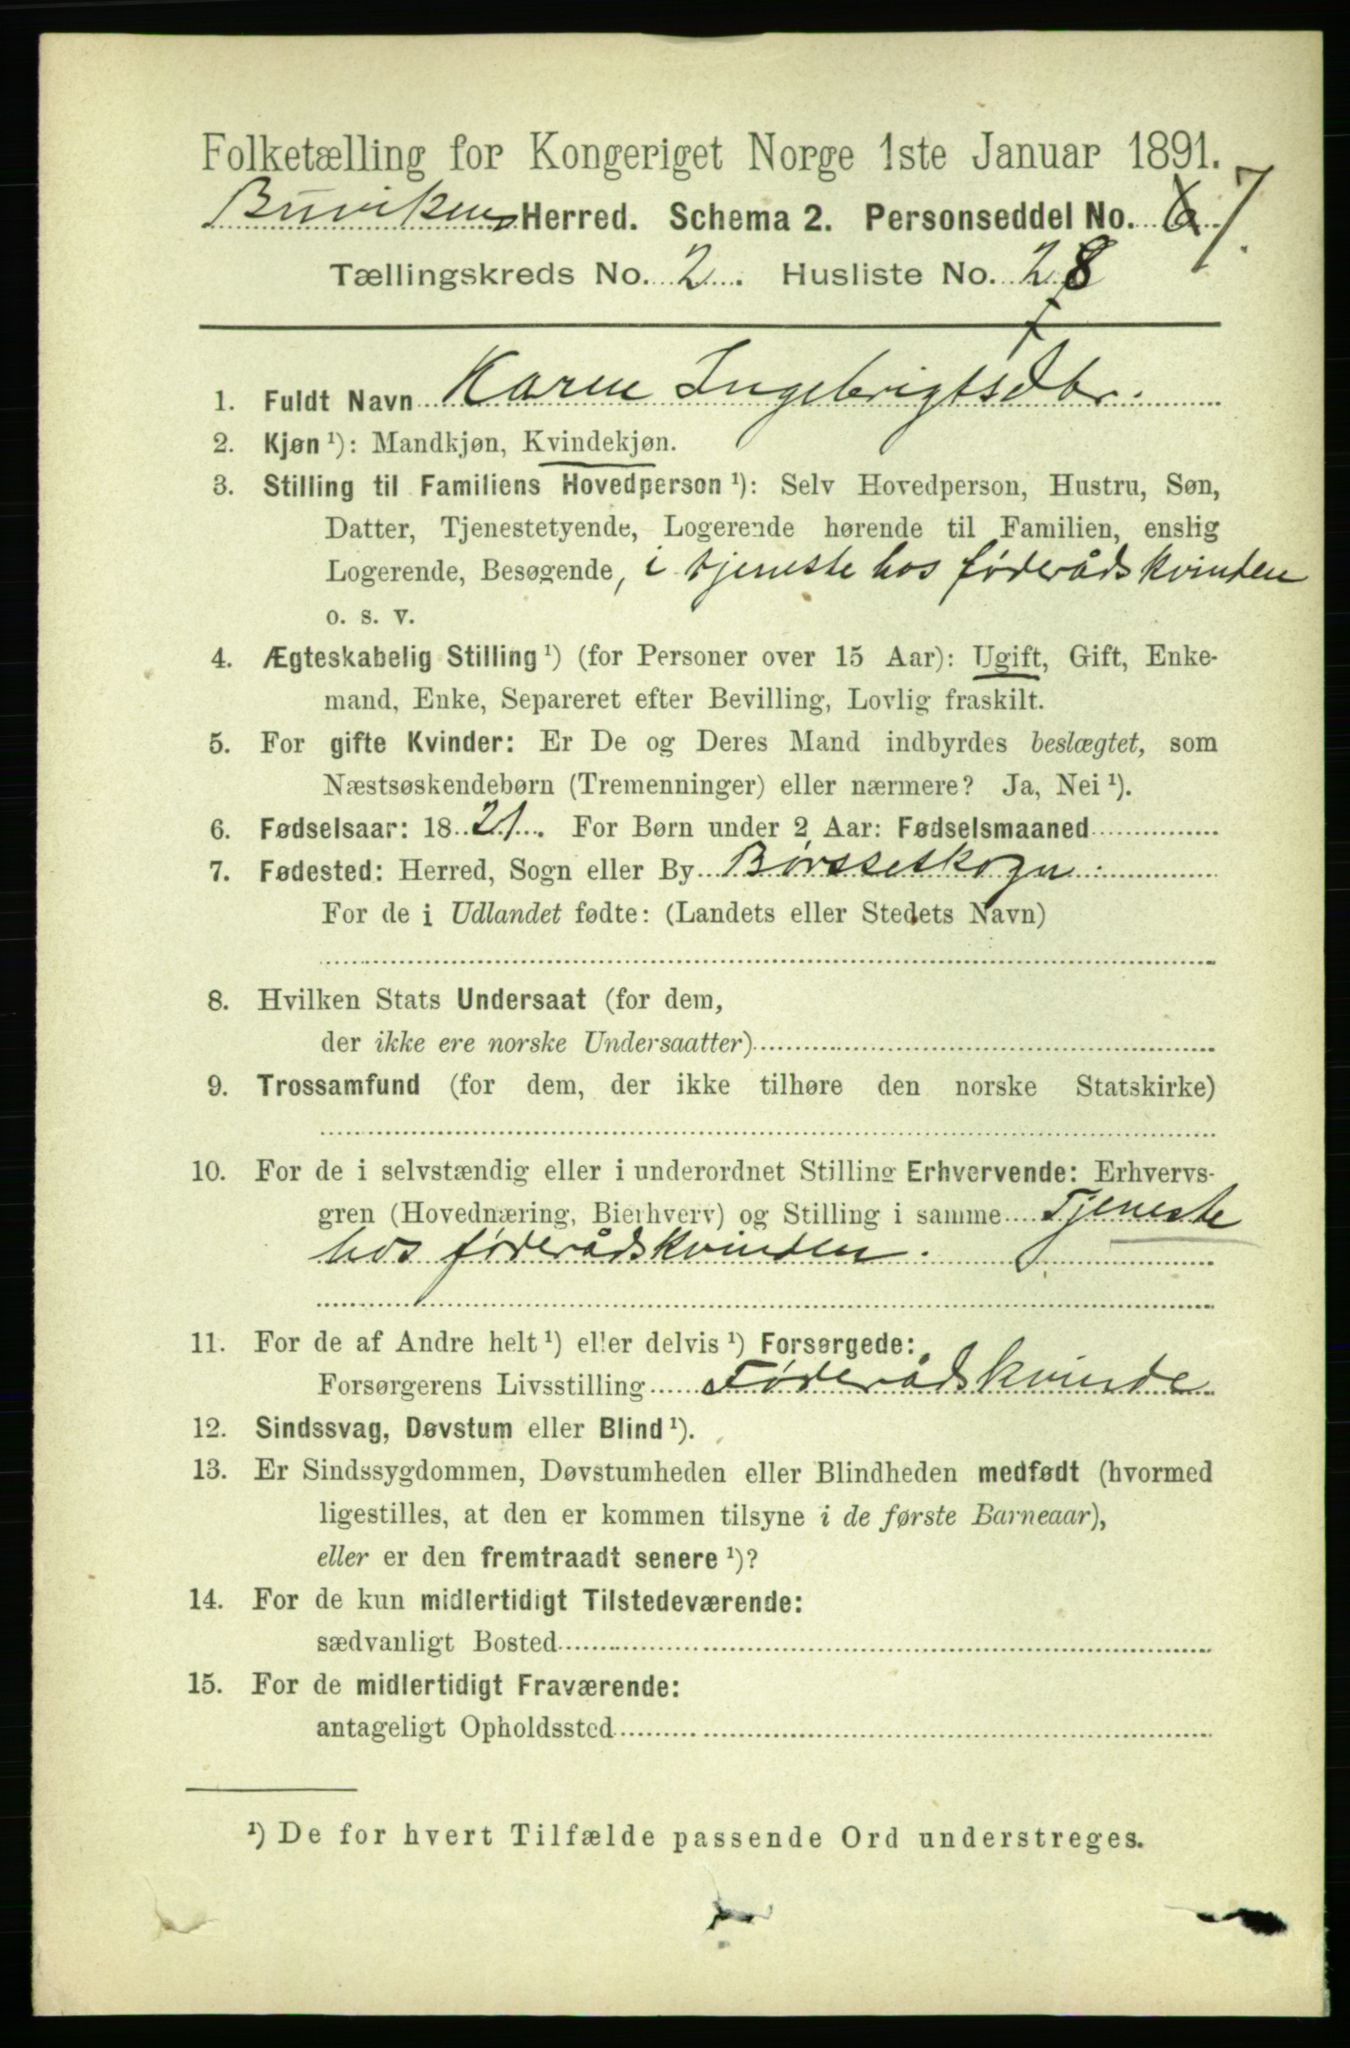 Folketælling for Kongeriget Norge 1ste Januar 1891.
Buvikens Herred. Schema 2. Personseddel No. 6 7.
Tællingskreds No. 2. Husliste No. 28
1. Fuldt Navn Karen Ingebrigtsdtr.
2. Kjøn ¹): Mandkjøn, Kvindekjøn.
3. Stilling til Familiens Hovedperson ¹): Selv Hovedperson, Hustru, Søn,
Datter, Tjenestetyende, Logerende hørende til Familien, enslig
Logerende, Besøgende, i tjeneste hos føderådskvinden
o. s. v.
4. Ægteskabelig Stilling ¹) (for Personer over 15 Aar): Ugift, Gift, Enke-
mand, Enke, Separeret efter Bevilling, Lovlig fraskilt.
5. For gifte Kvinder: Er De og Deres Mand indbyrdes beslægtet, som
Næstsøskendebørn (Tremenninger) eller nærmere? Ja, Nei ¹).
6. Fødselsaar: 1821. For Børn under 2 Aar: Fødselsmaaned
7. Fødested: Herred, Sogn eller By Børsseskogn.
For de i Udlandet fødte: (Landets eller Stedets Navn)
8. Hvilken Stats Undersaat (for dem,
der ikke ere norske Undersaatter)
9. Trossamfund (for dem, der ikke tilhøre den norske Statskirke)
10. For de i selvstændig eller i underordnet Stilling Erhvervende: Erhvervs-
gren (Hovednæring, Bierhverv) og Stilling i samme Tjeneste
hos føderådskvinden.
11. For de af Andre helt ¹) eller delvis ¹) Forsørgede:
Forsørgerens Livsstilling Føderådskvinde
12. Sindssvag, Døvstum eller Blind ¹).
13. Er Sindssygdommen, Døvstumheden eller Blindheden medfødt (hvormed
ligestilles, at den er kommen tilsyne i de første Barneaar),
eller er den fremtraadt senere ¹)?
14. For de kun midlertidigt Tilstedeværende:
sædvanligt Bosted
15. For de midlertidigt Fraværende:
antageligt Opholdssted
¹) De for hvert Tilfælde passende Ord understreges.